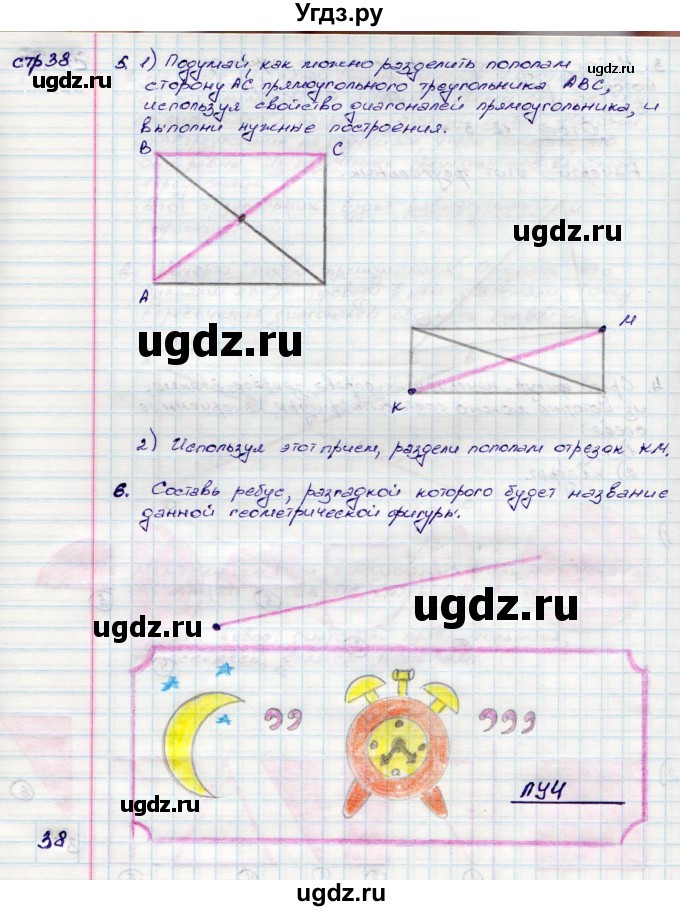 Угдз.ру
стр 38
5. 1) Подумай, как можно разделить пополам
сторону АС прямоугольного треугольника АВС,
используя свойство диагоналей прямоугольника, и
выполни нужные построения.
ugdz.ru
B
C
ugdz.ru
A
ugdz.ru
М
К
ugdz.ru
2) Используя этот прием, раздели пополам отрезок КМ.
6. Составь ребус, разгадкой которого будет название
данной геометрической фигуры.
ugdz.ru
ugdz.ru
,,
,,,
ЛУЧ
ugdz.ru
ugdz.ru
38
ugdz.ru